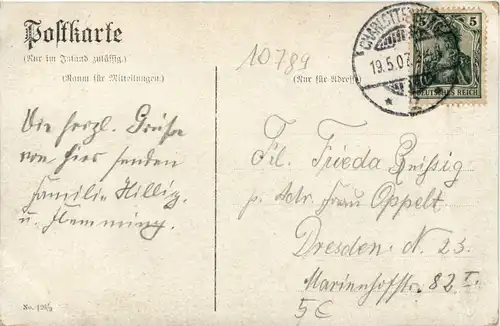 Postkarte
(Nur im Inland zulässig.)
(Raum für Mitteilungen.)
10789
(Nur für Adresse
CHARLOTTENBURG
19.5.07.
5 5
DEUTSCHES REICH
Die herzl. Grüße
von hier senden
Familie Hillig
u. Flemming.
Frl. Frieda
p. Adr. Frau Oppelt
Dresden N. 23.
Marienhofstr. 82 I.
5C